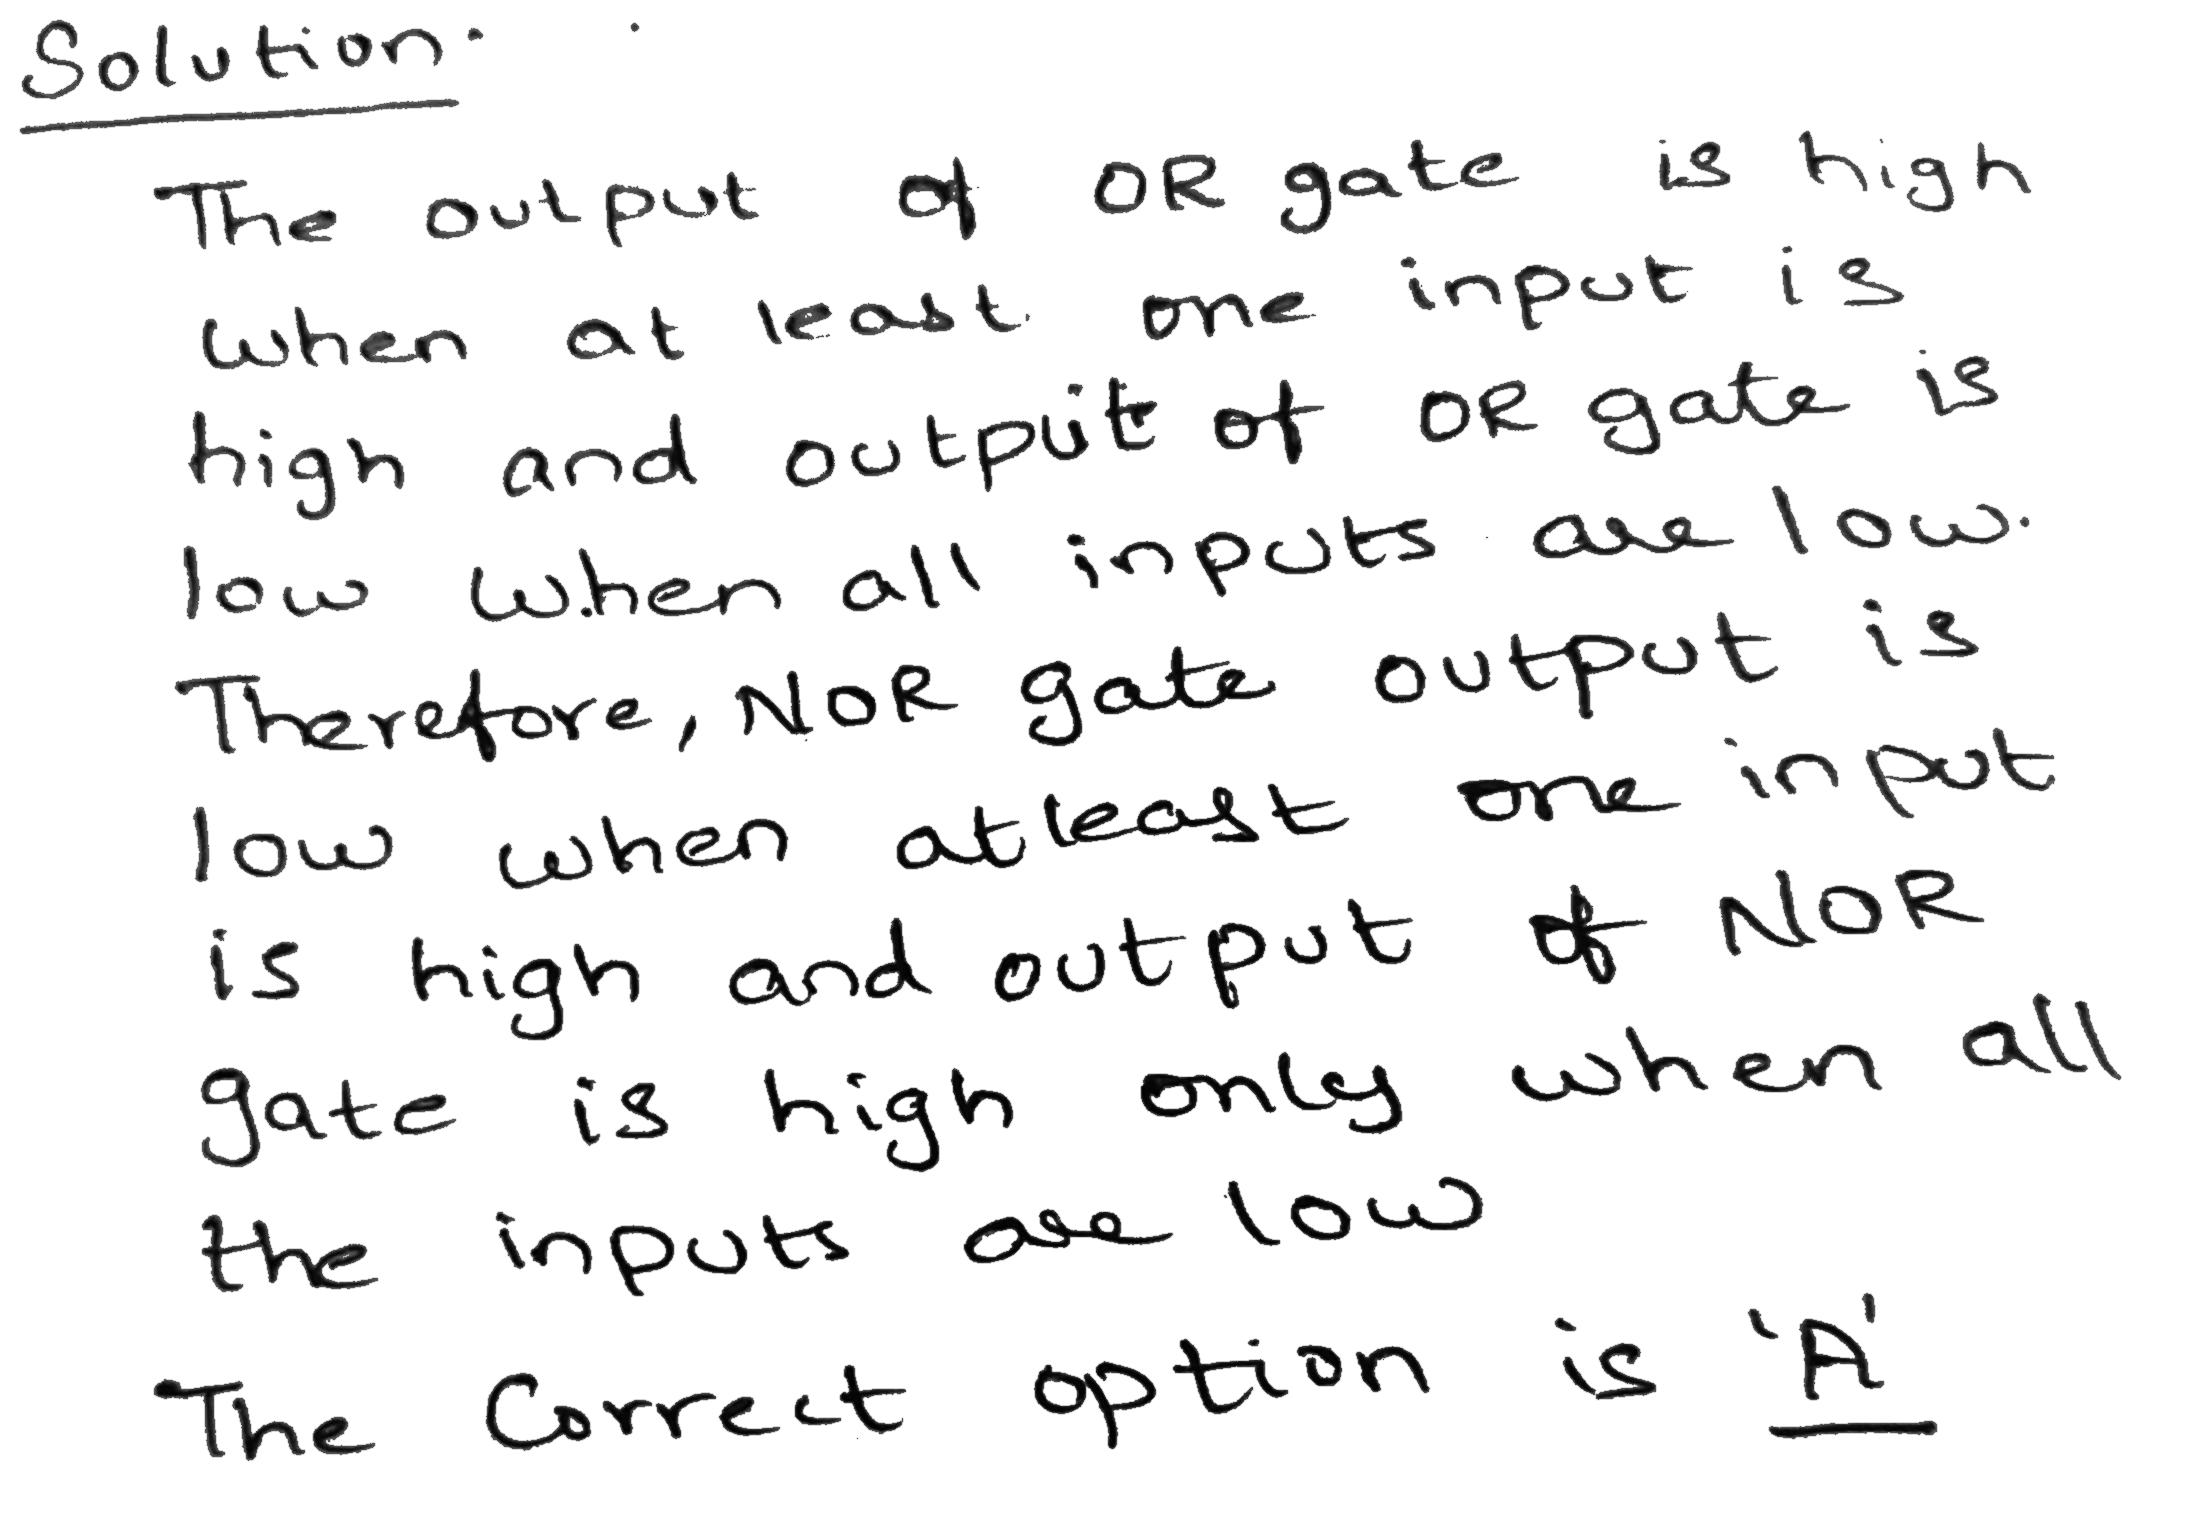 Solution.
The output of OR gate is high
when at least one input is
high and output of OR gate is
low when all inputs are low.
Therefore, NOR gate output is
low when atleast one input
is high and output of NOR
gate is high only when all
the inputs are low
The Correct option is 'A'